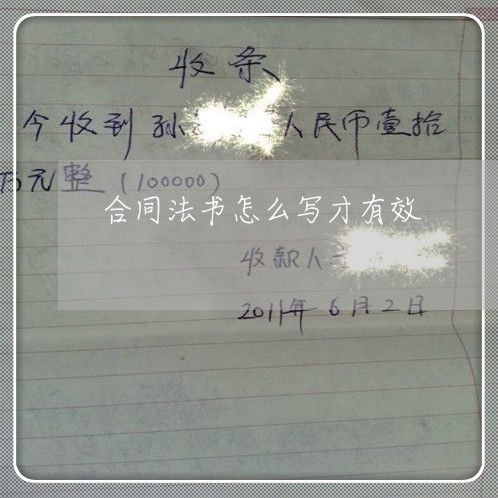 收条
今收到孙 人民币壹拾
万元整（100000）
合同法书怎么写才有效
收款人
2011年6月2日